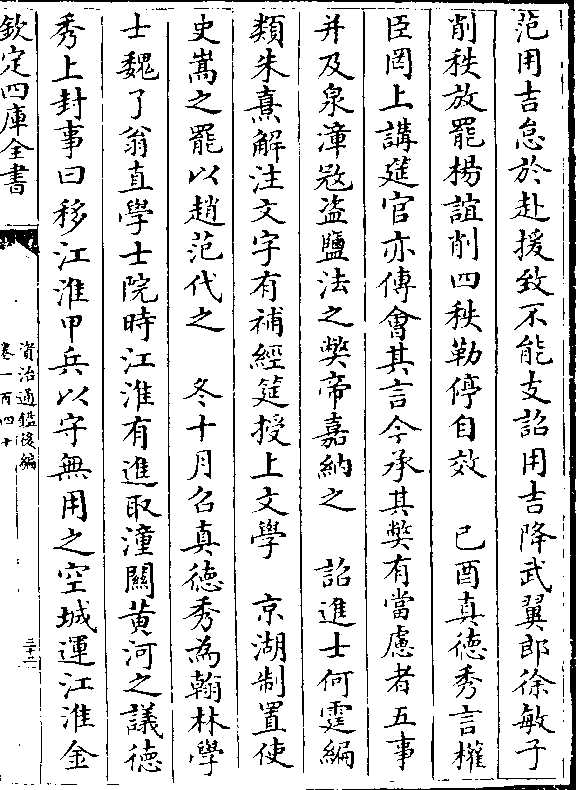 范用吉怠於赴援致不能支詔用吉降武翼郎徐敏子
削秩放罷楊誼削四秩勒停自效　己酉真德秀言權
臣罔上講筵官亦傳會其言今承其獘有當慮者五事
并及泉漳寇盗鹽法之獘帝嘉納之　詔進士何霆編
類朱熹解注文字有補經筵授上文學　京湖制置使
史嵩之罷以趙范代之　冬十月召真德秀為翰林學
士魏了翁直學士院時江淮有進取潼關黄河之議德
秀上封事曰移江淮甲兵以守無用之空城運江淮金
欽定四庫全書
資治通鑑後編
卷一百四十
三十二